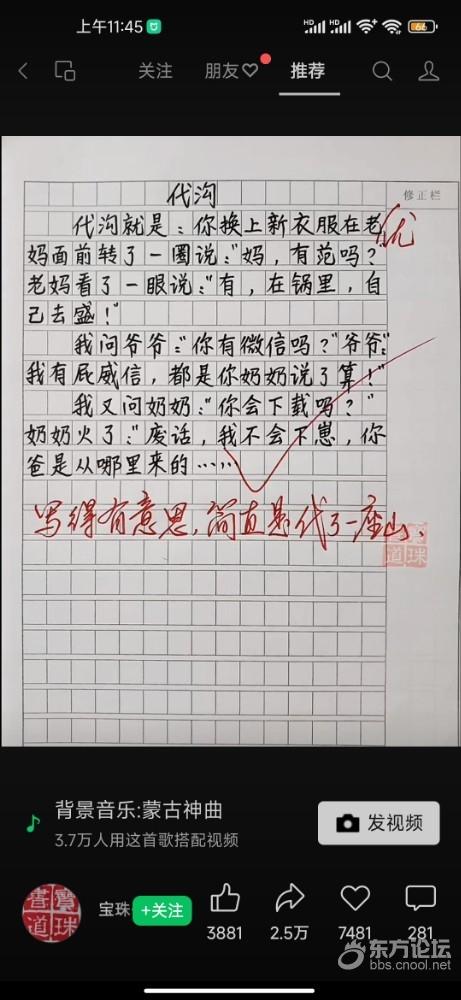 上午11:45
HD HD 66
关注 朋友♡ 推荐
修正栏
代沟
代沟就是：你换上新衣服在老
妈面前转了一圈说："妈，有范吗？"
老妈看了一眼说："有，在锅里，自
己去盛！"
优
我问爷爷："你有微信吗？"爷爷：
"我有屁威信，都是你奶奶说了算！"
我又问奶奶："你会下载吗？"
奶奶火了："废话，我不会下崽，你
爸是从哪里来的……
写得有意思，简直是代了一座山、
道珠
背景音乐:蒙古神曲
3.7万人用这首歌搭配视频
发视频
書寶
道珠
宝珠 +关注
3881 2.5万 7481 281
东方论坛
bbs.cnool.net